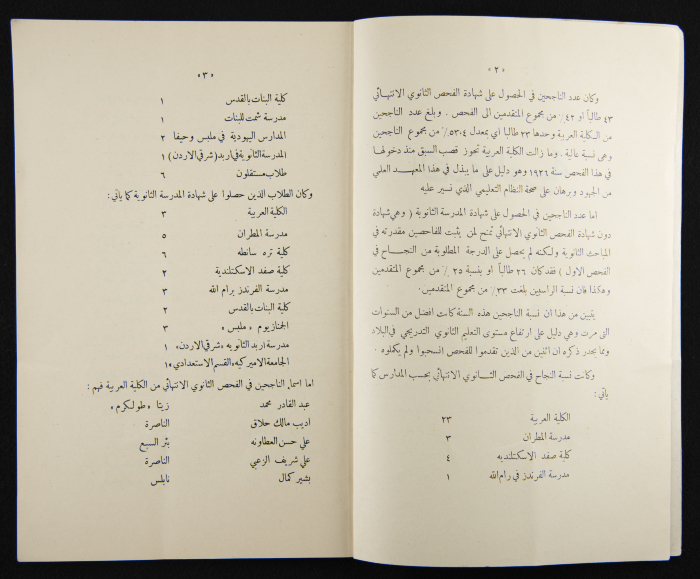 « ٢ »
وكان عدد الناجحين في الحصول على شهادة الفحص الثانوي الانتهائي
٤٣ طالباً او ٤٢٪ من مجموع المتقدمين الى الفحص . وبلغ عدد الناجحين
من الكلية العربية وحدها ٢٣ طالبا اي بمعدل ٥٣،٤٪ من مجموع الناجحين
وهى نسبة عالية . وما زالت الكلية العربية تحوز قصب السبق منذ دخولها
في هذا الفحص سنة ١٩٢٦ وهو دليل على ما يبذل في هذا المعهد العلمي
من الجهود وبرهان على صحة النظام التعليمي الذي تسير عليه
اما عدد الناجحين في الحصول على شهادة المدرسة الثانوية ( وهي شهادة
دون شهادة الفحص الثانوي الانتهائي تمنح لمن يثبت للفاحصين مقدرته في
المباحث الثانوية ولكنه لم يحصل على الدرجة المطلوبة من النجاح في
الفحص الاول ) فقد كان ٢٦ طالباً او بنسبة ٢٥٪ من مجموع المتقدمين
وهكذا فان نسبة الراسبين بلغت ٣٣٪ من مجموع المتقدمين.
يتبين من هذا ان نسبة الناجحين هذه السنة كانت افضل من السنوات
التى مرت وهي دليل على ارتفاع مستوى التعليم الثانوي التدريجي في البلاد
ومما يجدر ذكره ان اثنين من الذين تقدموا للفحص انسحبوا ولم يكملوه .
وكانت نسبة النجاح في الفحص الثانوي الانتهائي بحسب المدارس كما
يأتي :
الكلية العربية ٢٣
مدرسة المطران ٣
كلية صفد الاسكتلنديه ٤
مدرسة الفرندز في رام الله ١
« ٣ »
كلية البنات بالقدس ١
مدرسة شمت للبنات ١
المدارس اليهودية في ملبس وحيفا ٢
المدرسة الثانوية في اربد (شرقي الاردن) ١
طلاب مستقلون ٦
وكان الطلاب الذين حصلوا على شهادة المدرسة الثانوية كما يأتي :
الكلية العربية ٣
مدرسة المطران ٥
كلية تره سانطه ٦
كلية صفد الاسكتلندية ٢
مدرسة الفرندز برام الله ٣
كلية البنات بالقدس ٢
الجمنازيوم « ملبس » ٣
مدرسة اربد الثانويه «شرقي الاردن» ١
الجامعة الاميركيه «القسم الاستعدادي» ١
اما اسماء الناجحين في الفحص الثانوي الانتهائي من الكلية العربية فهم :
عبد القادر محمد زيتا « طولكرم »
اديب مالك حلاق الناصرة
علي حسن العطاونه بئر السبع
علي شريف الزعبي الناصرة
بشير كمال نابلس